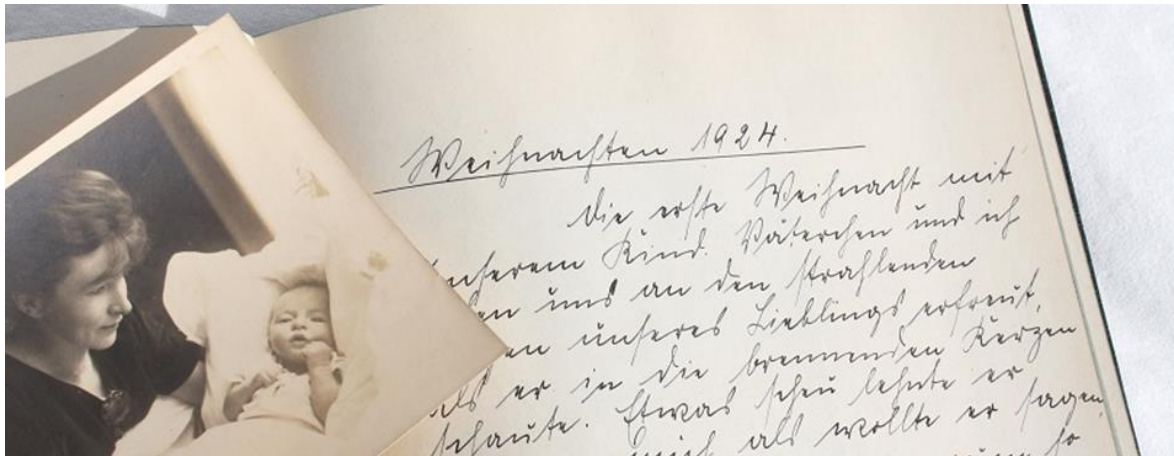 Weihnachten 1924.
Die erste Weihnacht mit
unserem Kind. Väterchen und ich
uns an den strahlenden
unseres Lieblings erfreut,
als er in die brennenden Kerzen
schaute. Etwas scheu lehnte er
mich als wollte er sagen,
so